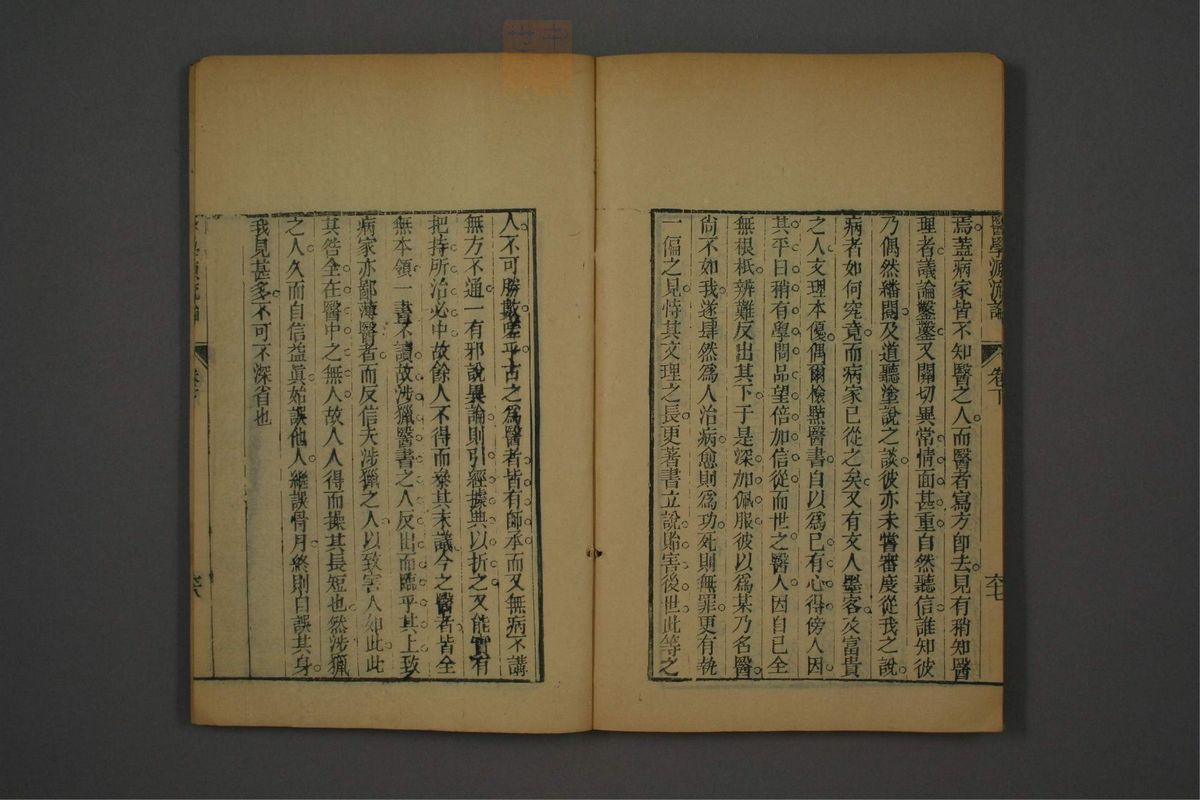 醫學源流論 卷下 六七
焉蓋病家皆不知醫之人而醫者寫方卽去見有稍知醫
理者議論鑿鑿又關切異常情面甚重自然聽信誰知彼
乃偶然繙閱及道聽塗說之談彼亦未嘗審度從我之說
病者如何究竟而病家已從之矣又有文人墨客及富貴
之人文理本優偶爾檢點醫書自以爲已有心得傍人因
其平日稍有學問品望倍加信從而世之醫人因自己全
無根柢辨難反出其下于是深加佩服彼以爲某乃名醫
尙不如我遂肆然爲人治病愈則爲功死則無罪更有執
一偏之見恃其文理之長更著書立說貽害後世此等之
人不可勝數嗟乎古之爲醫者皆有師承而又無病不講
無方不通一有邪說異論則引經據典以折之又能實有
把持所治必中故餘人不得而參其末議今之醫者皆全
無本領一書不讀故涉獵醫書之人反出而臨乎其上致
病家亦鄙薄醫者而反信夫涉獵之人以致害人如此此
其咎全在醫中之無人故人人得而操其長短也然涉獵
之人久而自信益眞始誤他人繼誤骨月終則自誤其身
我見甚多不可不深省也